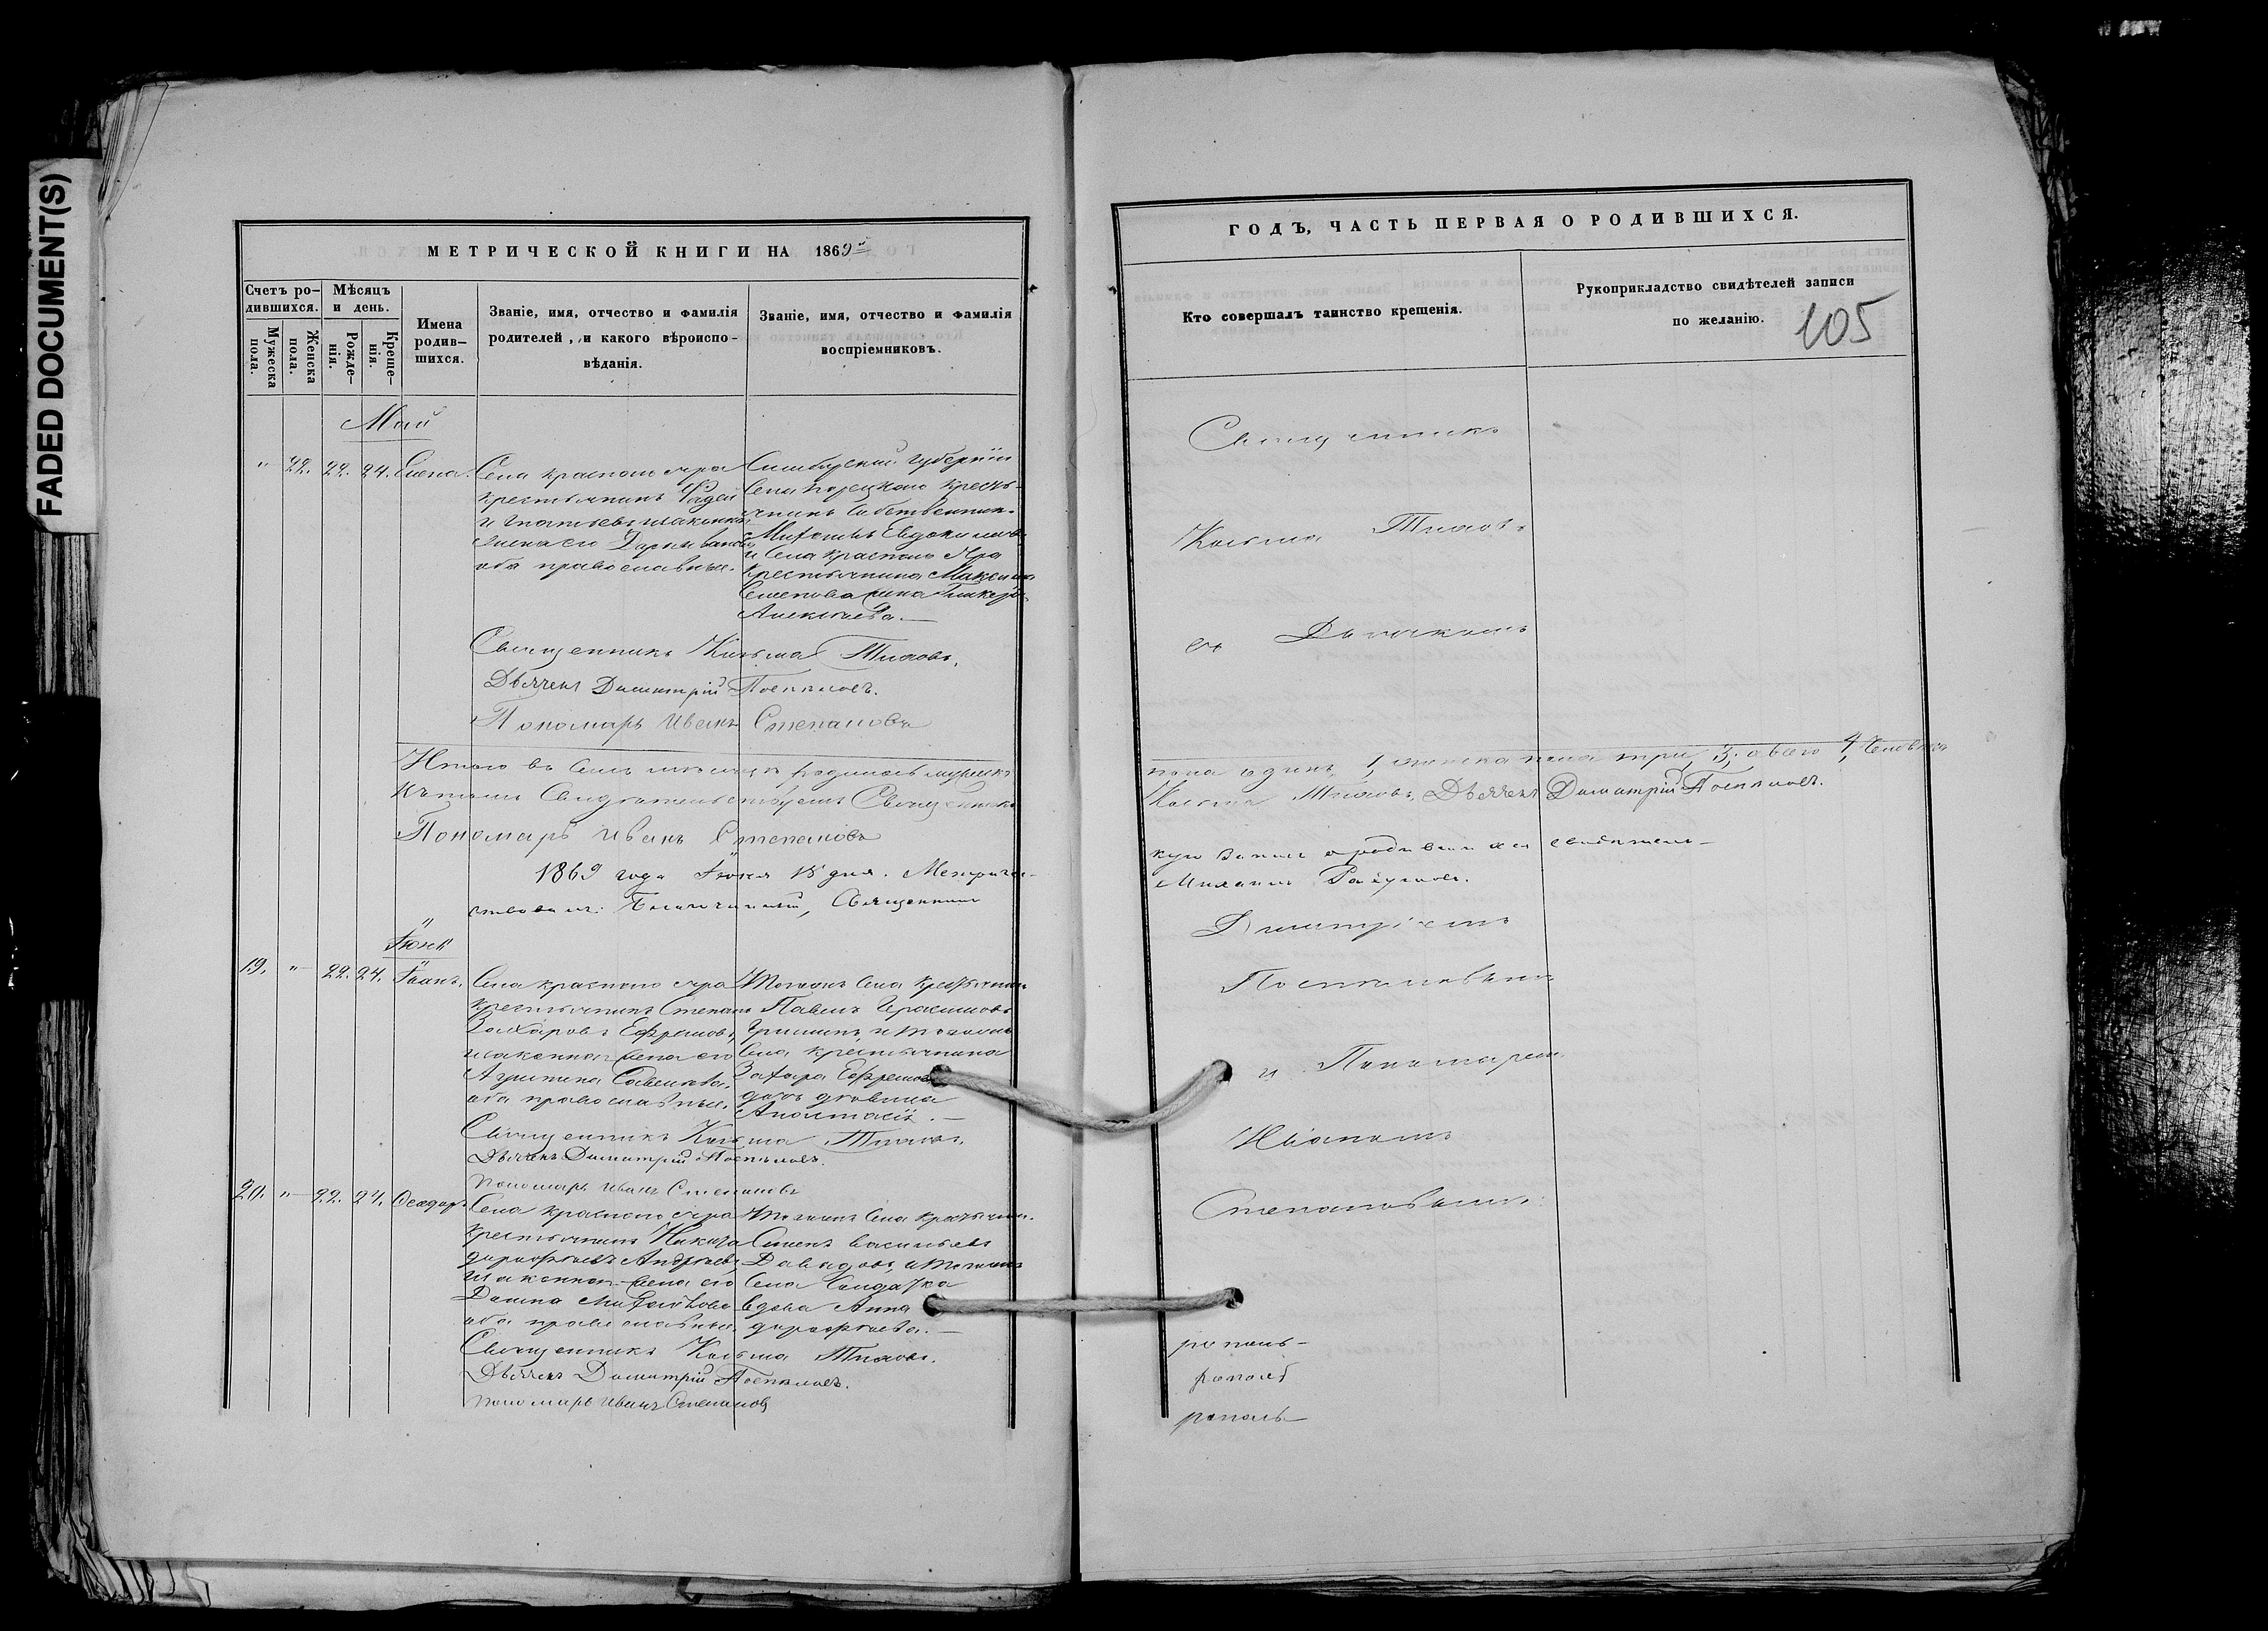 FADED DOCUMENT(S)
МЕТРИЧЕСКОЙ КНИГИ НА 1869й
Счетъ ро-
дившихся.
Мужеска
пола.
Женска
пола.
Мѣсяцъ
и день.
Рожде-
нія.
Креще-
нія.
Имена
родив-
шихся.
Званіе, имя, отчество и фамилія
родителей, и какого вѣроиспо-
вѣданія.
Званіе, имя, отчество и фамилія
воспріемниковъ.
Май
" 22. 22. 24. Елена.
Села краснаго яра
крестьянинъ Фадей
Игнатьевъ и законная
жена его Дарья Иванова
оба православные.
Симбирской губерніи
Села Порецкаго кресть-
янинъ собственник
Евдокимовъ
и Села Краснаго Яра
крестьянина Максима
Семенова жена Гликерья
Алексѣева.—
Священникъ Козьма Тиховъ.
Дьячекъ Димитрій Поспѣловъ.
Пономарь Иванъ Степановъ
Итого въ Семъ мѣсяцѣ родилось мужеска
Священникъ
Пономарь Иванъ Степановъ
1869 года Іюня 15 дня. Метричес-
ствовалъ: Благочинный, Священникъ
Іюнь
19. "— 22. 24. Іоаннъ.
Села краснаго яра
крестьянинъ Степанъ
Захаровъ Ефремовъ,
и законная жена его
Агрипина Савельева,
оба православные.
Тогожъ Села Крестьянинъ
Павелъ Герасимовъ
Гришинъ, и тогожъ
Села крестьянина
Захара Ефремова
дочь дѣвица
Анастасія.—
Священникъ Козьма Тиховъ.
Дьячекъ Димитрій Поспѣловъ.
Пономарь Иванъ Степановъ
20. "— 22. 24. Ѳеодоръ.
Села краснаго яра
крестьянинъ Никита
Дорофѣевъ Андреевъ,
и законная жена его
Домна
оба православные.
Тогожъ Села крестьянин.
Семенъ Васильевъ
Давыдовъ, и тогожъ
Села Солдатка
вдова Анна
Дорофѣева.—
Священникъ Козьма Тиховъ.
Дьячекъ Димитрій Поспѣловъ.
Пономарь Иванъ Степановъ
ГОДЪ, ЧАСТЬ ПЕРВАЯ О РОДИВШИХСЯ.
Кто совершалъ таинство крещенія.
Рукоприкладство свидѣтелей записи
по желанію.
105
Священникъ
Козьма Тиховъ
съ Дьячкомъ
пола одинъ, 1, женска пола три, 3; обоего 4, человѣка
Козьма Тиховъ, Дьячекъ Димитрій Поспѣловъ.
кую запись о родившихся свидѣтель-
Михаилъ
Димитріемъ
Поспѣловымъ
и Пономаремъ
Иваномъ
Степановымъ